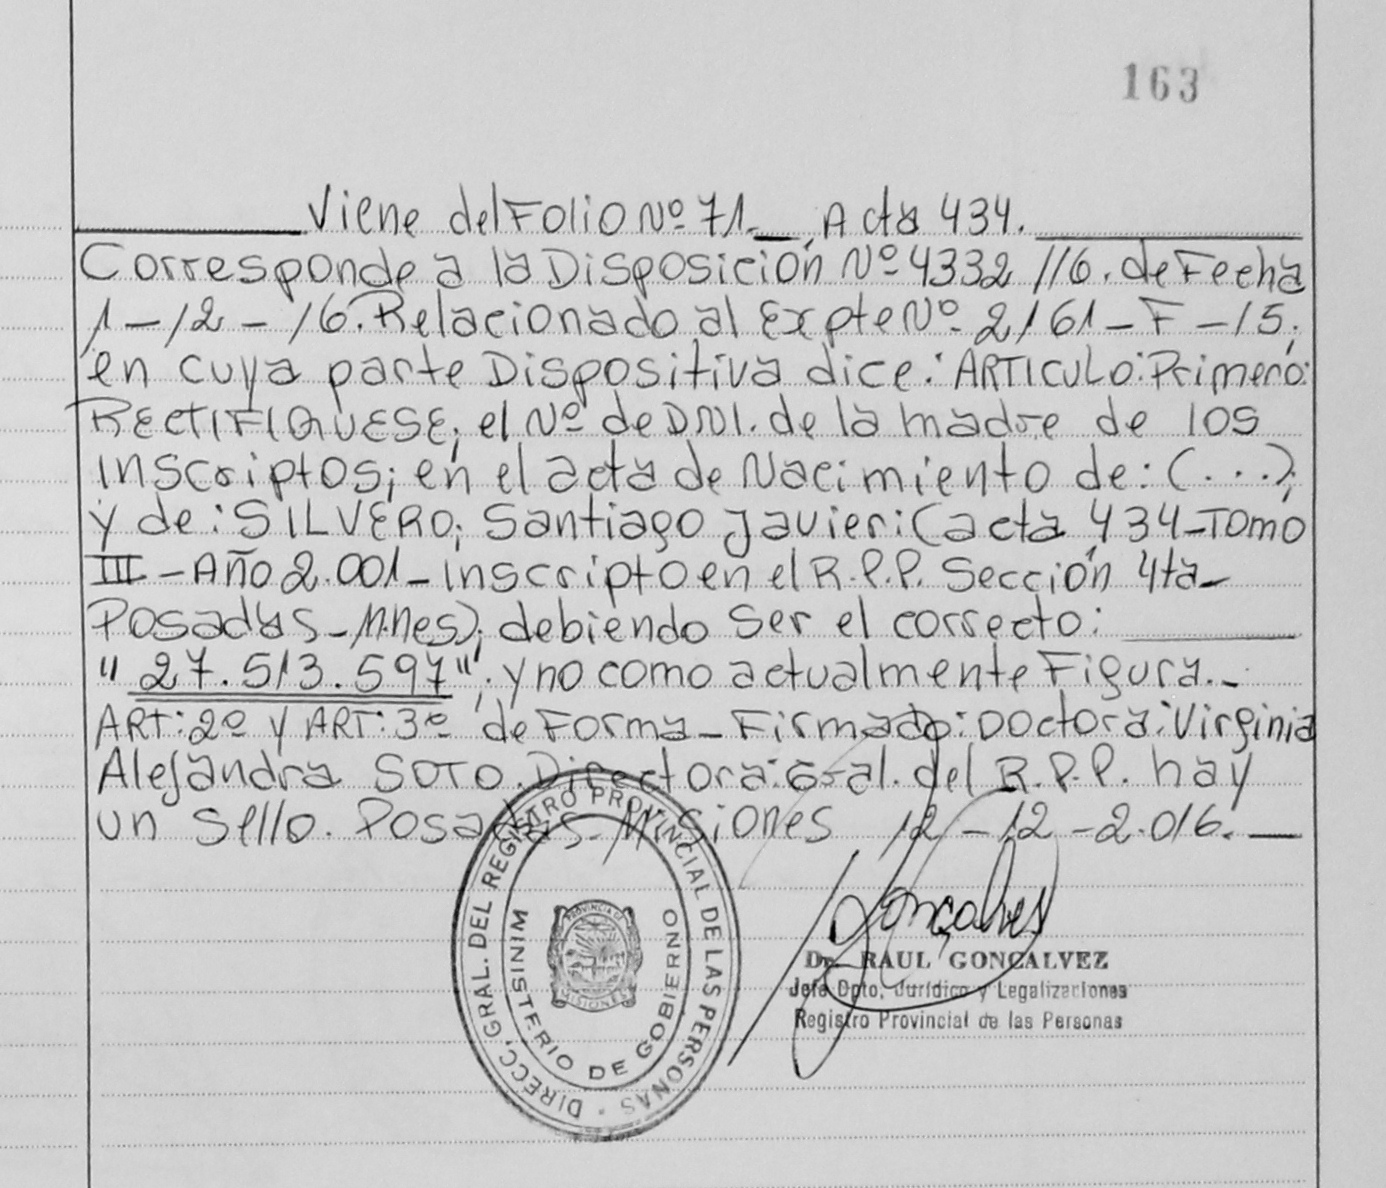 163
Viene del Folio Nº 71.— Acta 434.
Corresponde a la Disposición Nº 4332/16. de Fecha
1-12-16. Relacionado al Expte Nº 2161-F-15;
en cuya parte Dispositiva dice: ARTICULO: Primero:
RECTIFIQUESE; el Nº de DNI. de la madre de los
inscriptos; en el acta de Nacimiento de: (...);
y de: SILVERO; Santiago Javier: (acta 434-Tomo
III-Año 2.001-inscripto en el R.P.P. Sección 4ta-
Posadas-Mnes); debiendo Ser el correcto:
"27.513.597"; y no como actualmente Figura.-
ART: 2º y ART: 3º de Forma-Firmado: Doctora: Virginia
Alejandra SOTO. Directora: Gral. del R.P.P. hay
un Sello. Posadas-Misiones 12-12-2.016.—
Gonçalves
Dr. RAUL GONCALVEZ
Jefe Dpto. Jurídico y Legalizaciones
Registro Provincial de las Personas
DIRECC. GRAL. DEL REGISTRO PROVINCIAL DE LAS PERSONAS
MINISTERIO DE GOBIERNO
PROVINCIA DE
MISIONES